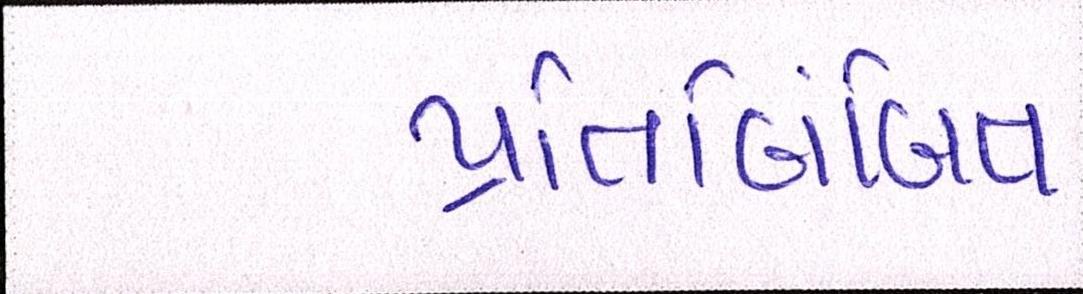 પ્રતિબિંબિત